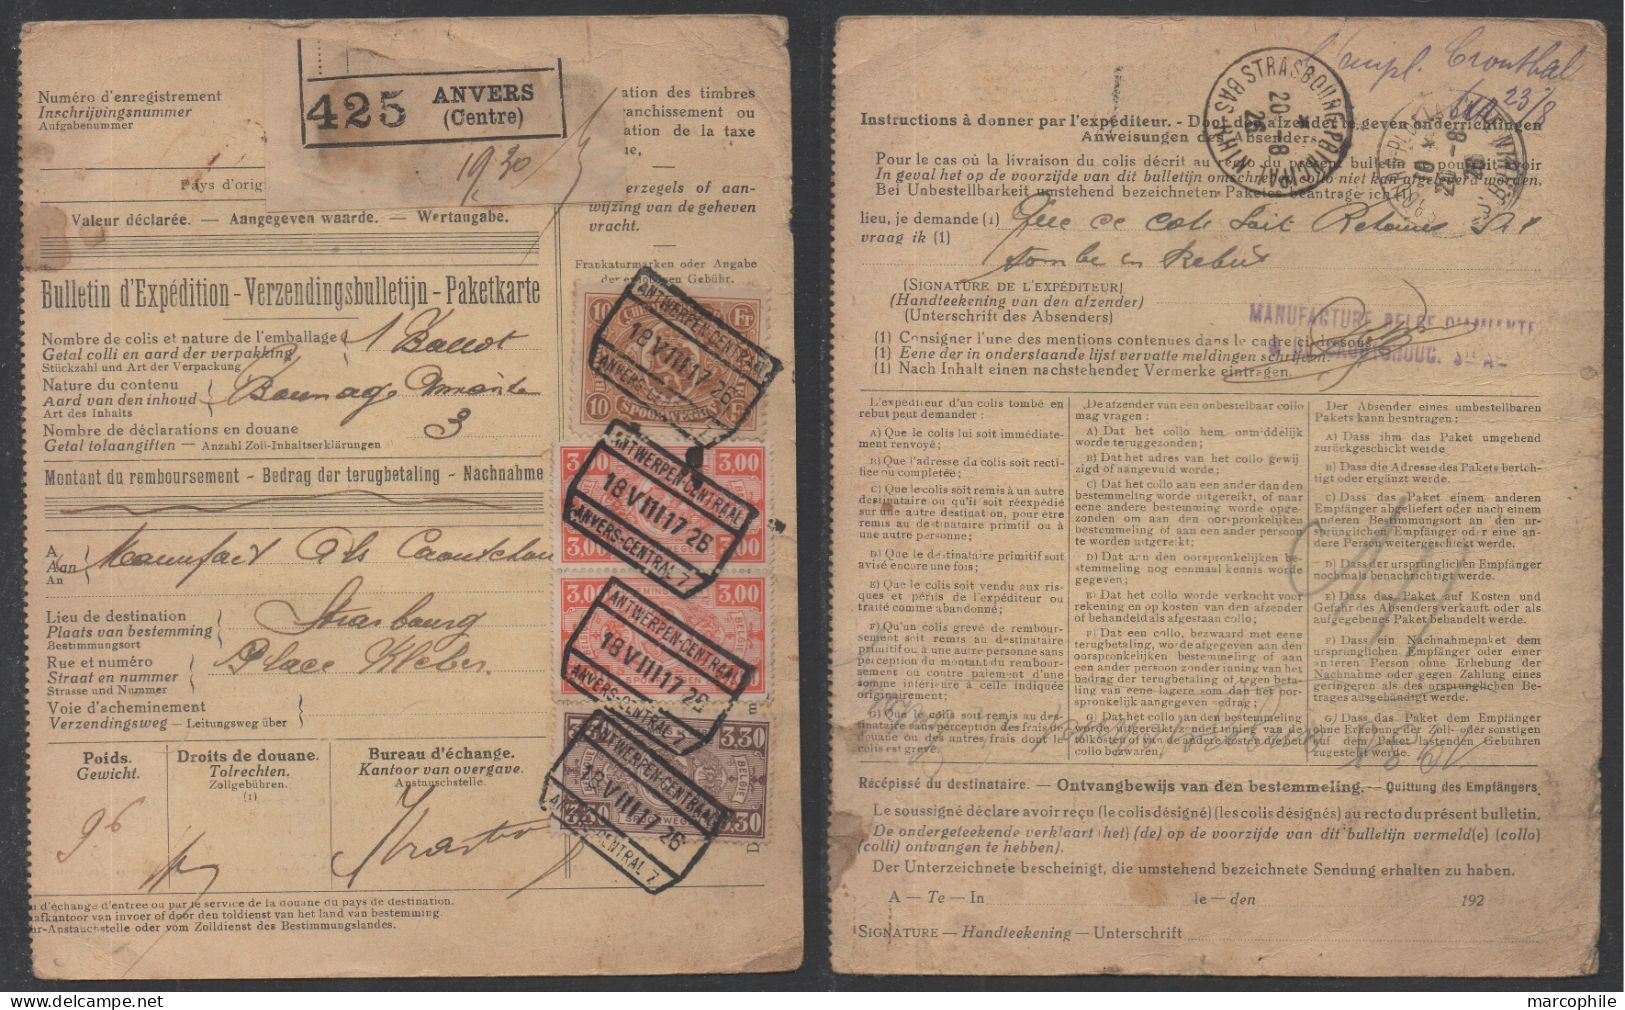 425 ANVERS
(Centre)
Numéro d'enregistrement
Inschrijvingsnummer
Aufgabenummer
19,30
Pays d'orig
ation des timbres
ranchissement ou
ation de la taxe
erzegels of aan-
wijzing van de geheven
vracht.
Frankaturmarken oder Angabe
der Gebühr.
Valeur déclarée. — Aangegeven waarde. — Wertangabe.
Bulletin d'Expédition - Verzendingsbulletijn - Paketkarte
Nombre de colis et nature de l'emballage
Getal colli en aard der verpakking
Stückzahl und Art der Verpackung
1 Ballot
Nature du contenu
Aard van den inhoud
Art des Inhalts
Nombre de déclarations en douane
Getal tolaangiften — Anzahl Zoll-Inhaltserklärungen
3
Montant du remboursement - Bedrag der terugbetaling - Nachnahme
A
Aan
An
Manufact Caoutchou
Lieu de destination
Plaats van bestemming
Bestimmungsort
Strasbourg
Rue et numéro
Straat en nummer
Strasse und Nummer
Place Kleber
Voie d'acheminement
Verzendingsweg — Leitungsweg über
Poids.
Gewicht.
Droits de douane.
Tolrechten.
Zollgebühren.
(1)
Bureau d'échange.
Kantoor van overgave.
Austauschstelle.
96
u d'échange d'entrée ou par le service de la douane du pays de destination.
afkantoor van invoer of door den toldienst van het land van bestemming.
ur-Anstauchstelle oder vom Zolldienst des Bestimmungslandes.
10 Fr
10 Fr
ANTWERPEN-CENTRAAL
18 VIII 17 26
3.00 3,00
3,00
ANTWERPEN-CENTRAAL
18 VIII 17 26
ANVERS-CENTRAL 7
3.00 3,00
ANTWERPEN-CENTRAAL
18 VIII 17 26
ANVERS-CENTRAL 7
3.30 3.30
BELGIE
3.30 SPOORWEGEN 3.30
ANTWERPEN-CENTRAAL
18 VIII 17 26
ANVERS-CENTRAL 7
Cronthal
23/8
STRASBOURG PRINCIPAL
BAS-RHIN
20-8
26
Instructions à donner par l'expéditeur. - Door den afzender te geven onderrichtingen
Anweisungen des Absenders.
Pour le cas où la livraison du colis décrit au recto du présent bulletin ne pourrait avoir
In geval het op de voorzijde van dit bulletin omschreven collo niet kan afgeleverd worden,
Bei Unbestellbarkeit umstehend bezeichneten Paketes beantrage ich (1)
lieu, je demande (1)
vraag ik (1)
Que ce colis soit Retourné
tombe en Rebut
(SIGNATURE DE L'EXPÉDITEUR)
(Handteekening van den afzender)
(Unterschrift des Absenders)
MANUFACTURE BELGE D'AMIANTE
(1) Consigner l'une des mentions contenues dans le cadre ci-dessous.
(1) Eene der in onderstaande lijst vervatte meldingen schrijven.
(1) Nach Inhalt einen nachstehender Vermerke eintragen.
L'expéditeur d'un colis tombé en
rebut peut demander :
A) Que le colis lui soit immédiate-
ment renvoyé ;
B) Que l'adresse du colis soit recti-
fiée ou complétée ;
C) Que le colis soit remis à un autre
destinataire ou qu'il soit réexpédié
sur une autre destination, pour être
remis au destinataire primitif ou à
une autre personne ;
D) Que le destinataire primitif soit
avisé encore une fois ;
E) Que le colis soit vendu aux ris-
ques et périls de l'expéditeur ou
traité comme abandonné ;
F) Qu'un colis grevé de rembour-
sement soit remis au destinataire
primitif ou à une autre personne sans
perception du montant du rembour-
sement ou contre paiement d'une
somme inférieure à celle indiquée
originairement ;
G) Que le colis soit remis au des-
tinataire sans perception des frais de
douane ou des autres frais dont le
colis est grevé.
De afzender van een onbestelbaar collo
mag vragen :
A) Dat het collo hem onmiddelijk
worde teruggezonden ;
B) Dat het adres van het collo gewij
zigd of aangevuld worde ;
C) Dat het collo aan een ander dan den
bestemmeling worde uitgereikt, of naar
eene andere bestemming worde opge-
zonden om aan den oorspronkelijken
bestemmeling of aan een ander persoon
te worden uitgereikt ;
D) Dat aan den oorspronkelijken be-
stemmeling nog eenmaal kennis worde
gegeven ;
E) Dat het collo worde verkocht voor
rekening en op kosten van den afzender
of behandeld als afgestaan collo ;
F) Dat een collo, bezwaard met eene
terugbetaling, worde afgegeven aan den
oorspronkelijken bestemmeling of aan
een ander persoon zonder inning van het
bedrag der terugbetaling of tegen beta-
ling van eene lagere som dan het oor-
spronkelijk aangegeven bedrag ;
G) Dat het collo aan den bestemmeling
worde uitgereikt zonder inning van de
tolkosten of van andere kosten die het
collo bezwaren.
Der Absender eines umbestellbaren
Pakets kann beantragen :
A) Dass ihm das Paket umgehend
zurückgeschickt werde
B) Dass die Adresse des Pakets berich-
tigt oder ergänzt werde.
C) Dass das Paket einem anderen
Empfänger abgeliefert oder nach einem
anderen Bestimmungsort an den ur-
sprünglichen Empfänger oder an eine an-
dere Person weitergeschickt werde.
D) Dass der ursprünglichen Empfänger
nochmals benachrichtigt werde.
E) Dass das Paket auf Kosten und
Gefahr des Absenders verkauft oder als
aufgegebenes Paket behandelt werde.
F) Dass ein Nachnahmepaket dem
ursprünglichen Empfänger oder einer
anderen Person ohne Erhebung der
Nachnahme oder gegen Zahlung eines
geringeren als des ursprünglichen Be-
trages ausgehändigt werde.
G) Dass das Paket dem Empfänger
ohne Erhebung der Zoll- oder sonstigen
auf dem Paket lastenden Gebühren
zugestellt werde.
Récépissé du destinataire. — Ontvangbewijs van den bestemmeling. — Quittung des Empfängers
Le soussigné déclare avoir reçu (le colis désigné) (les colis désignés) au recto du présent bulletin.
De ondergeteekende verklaart (het) (de) op de voorzijde van dit bulletijn vermeld(e) (collo)
(colli) ontvangen te hebben).
Der Unterzeichnete bescheinigt, die umstehend bezeichnete Sendung erhalten zu haben.
A — Te — In le — den 192
SIGNATURE — Handteekening — Unterschrift
marcophile